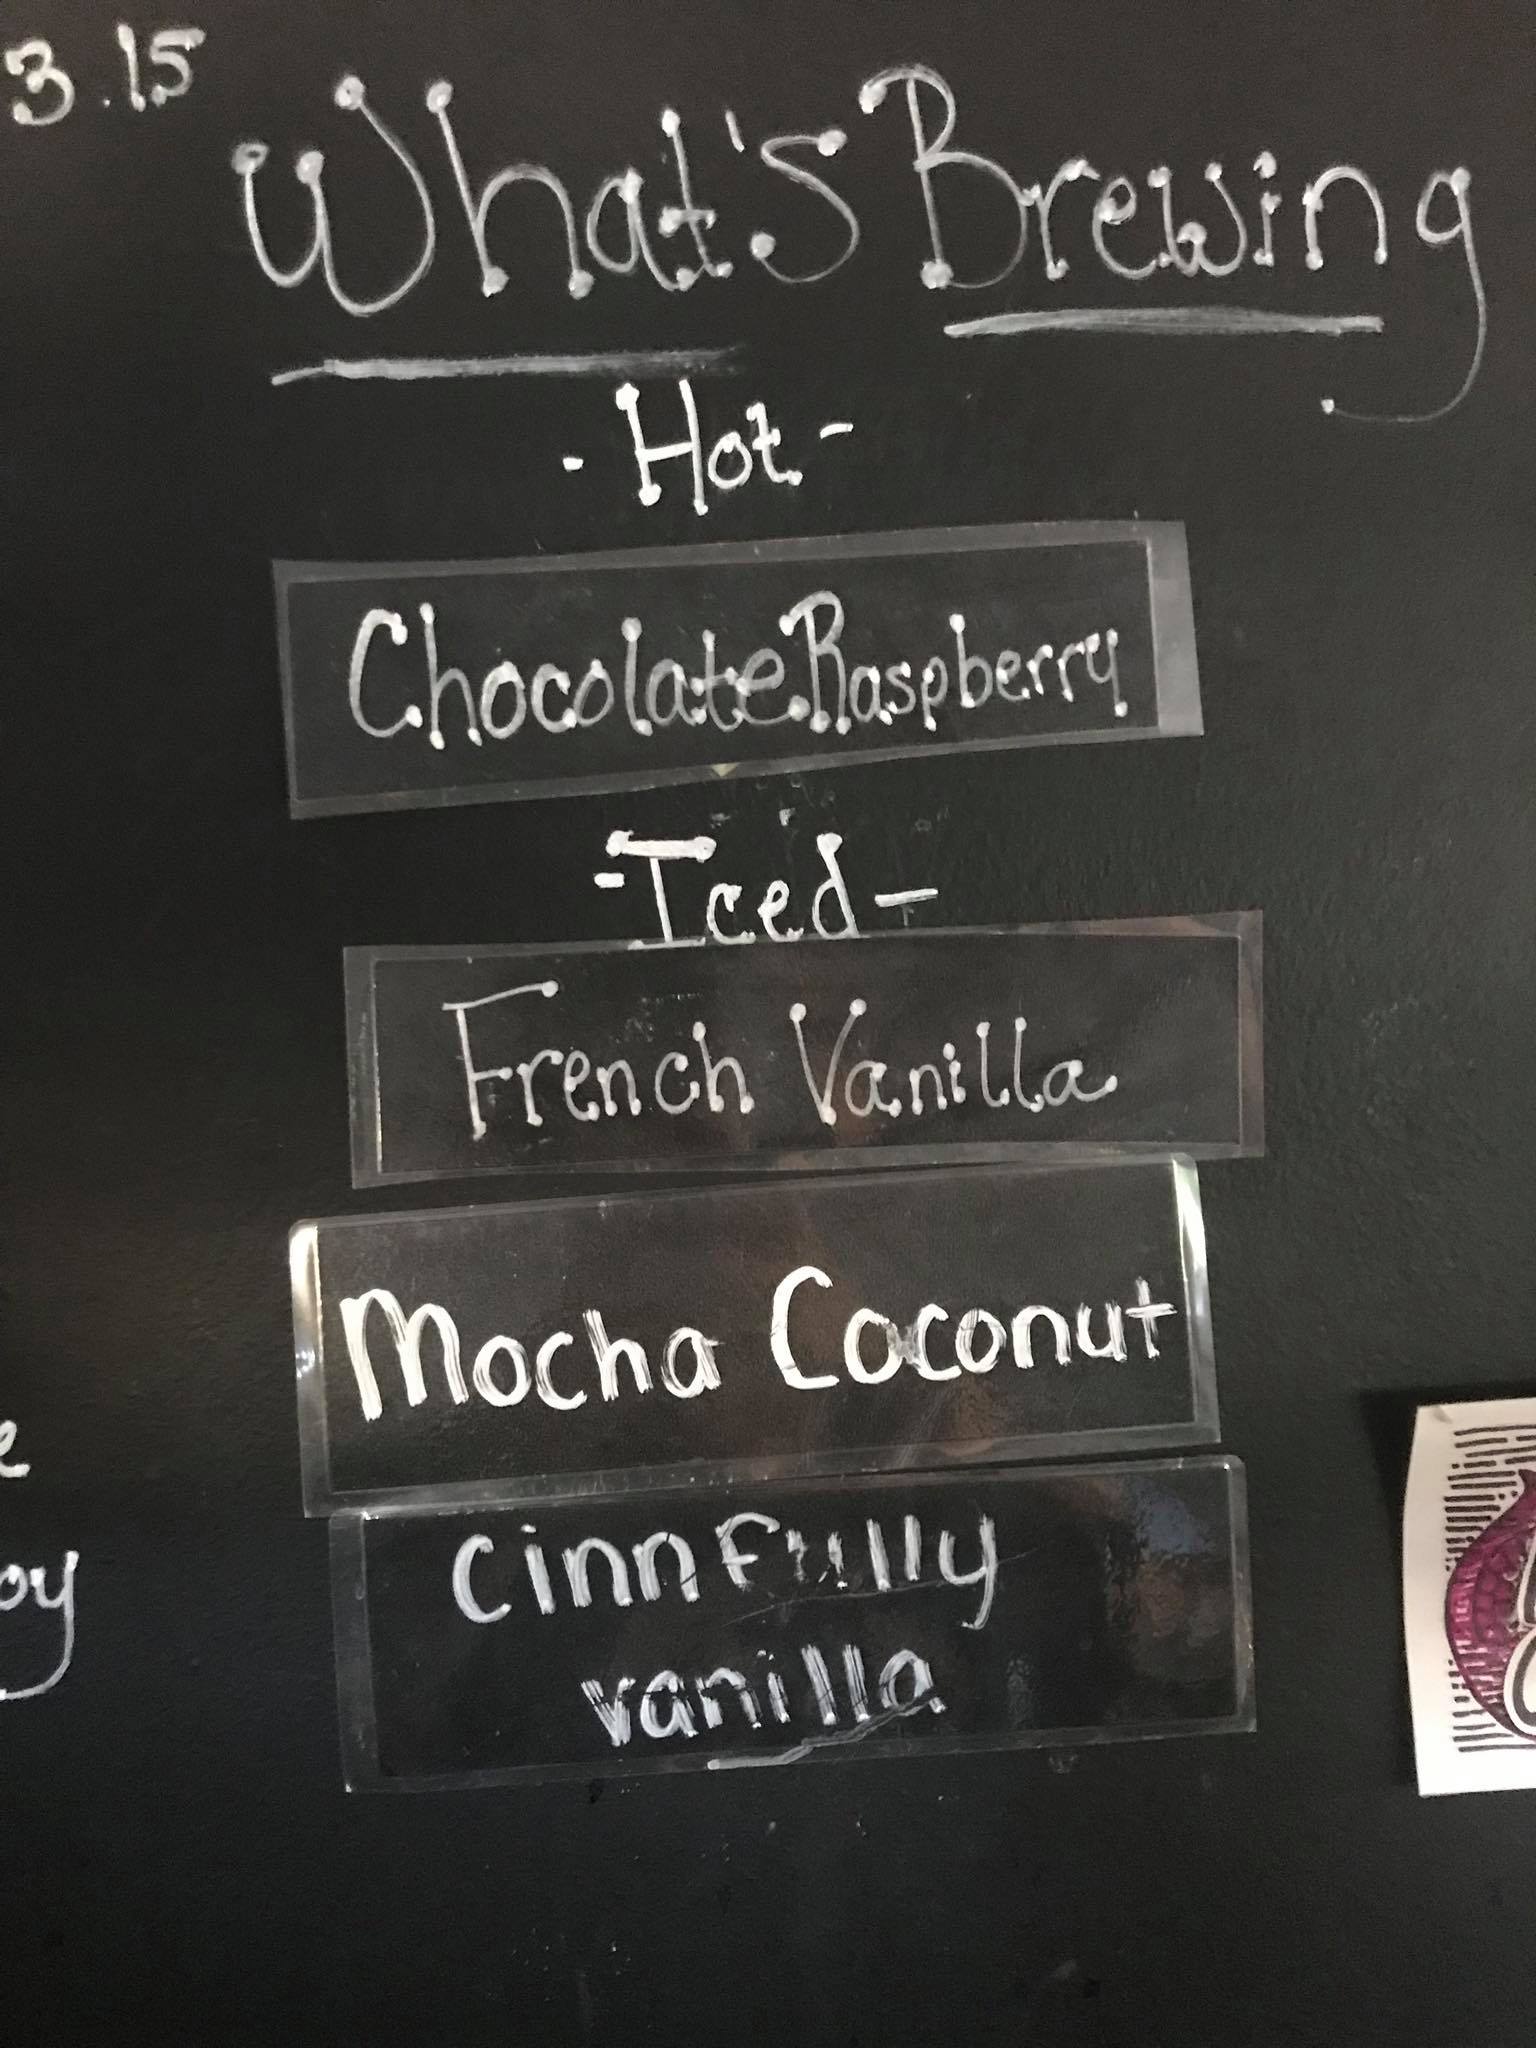 3.15
What's Brewing
- Hot -
Chocolate Raspberry
- Iced -
French Vanilla
Mocha Coconut
e
cinnfully
oy
vanilla